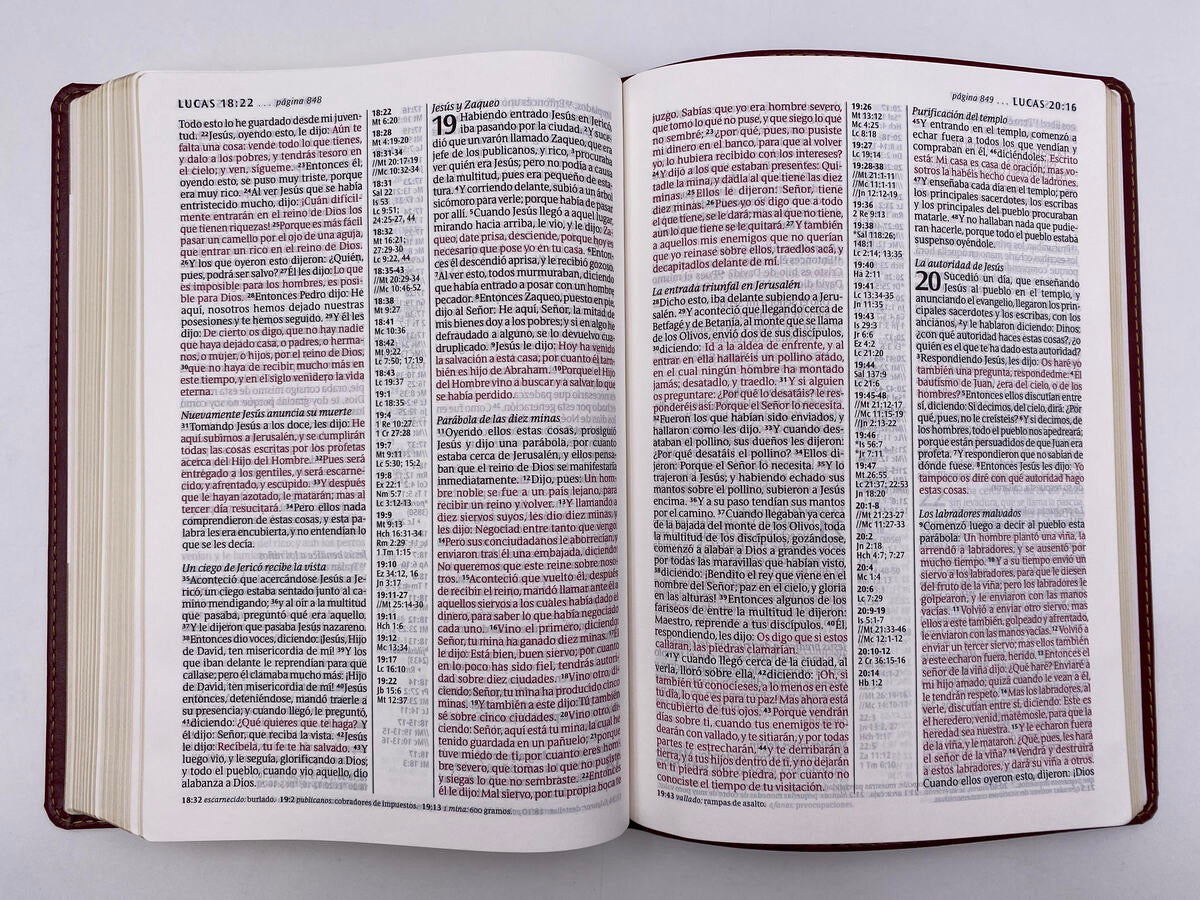 LUCAS 18:22 ... página 848
Todo esto lo he guardado desde mi juven-
tud. 22Jesús, oyendo esto, le dijo: Aún te
falta una cosa: vende todo lo que tienes,
y dalo a los pobres, y tendrás tesoro en
el cielo; y ven, sígueme. 23Entonces él,
oyendo esto, se puso muy triste, porque
era muy rico. 24Al ver Jesús que se había
entristecido mucho, dijo: ¡Cuán difícil-
mente entrarán en el reino de Dios los
que tienen riquezas! 25Porque es más fácil
pasar un camello por el ojo de una aguja,
que entrar un rico en el reino de Dios.
26Y los que oyeron esto dijeron: ¿Quién,
pues, podrá ser salvo? 27Él les dijo: Lo que
es imposible para los hombres, es posi-
ble para Dios. 28Entonces Pedro dijo: He
aquí, nosotros hemos dejado nuestras
posesiones y te hemos seguido. 29Y él les
dijo: De cierto os digo, que no hay nadie
que haya dejado casa, o padres, o herma-
nos, o mujer, o hijos, por el reino de Dios,
30que no haya de recibir mucho más en
este tiempo, y en el siglo venidero la vida
eterna.
Nuevamente Jesús anuncia su muerte
31Tomando Jesús a los doce, les dijo: He
aquí subimos a Jerusalén, y se cumplirán
todas las cosas escritas por los profetas
acerca del Hijo del Hombre. 32Pues será
entregado a los gentiles, y será escarne-
cido, y afrentado, y escupido. 33Y después
que le hayan azotado, le matarán; mas al
tercer día resucitará. 34Pero ellos nada
comprendieron de estas cosas, y esta pa-
labra les era encubierta, y no entendían lo
que se les decía.
Un ciego de Jericó recibe la vista
35Aconteció que acercándose Jesús a Je-
ricó, un ciego estaba sentado junto al ca-
mino mendigando; 36y al oír a la multitud
que pasaba, preguntó qué era aquello,
37Y le dijeron que pasaba Jesús nazareno.
38Entonces dio voces, diciendo: ¡Jesús, Hijo
de David, ten misericordia de mí! 39Y los
que iban delante le reprendían para que
callase; pero él clamaba mucho más: ¡Hijo
de David, ten misericordia de mí! 40Jesús
entonces, deteniéndose, mandó traerle a
su presencia; y cuando llegó, le preguntó,
41diciendo: ¿Qué quieres que te haga? Y
él dijo: Señor, que reciba la vista. 42Jesús
le dijo: Recíbela, tu fe te ha salvado. 43Y
luego vio, y le seguía, glorificando a Dios;
y todo el pueblo, cuando vio aquello, dio
alabanza a Dios.
18:22
Mt 6:20
18:28
Mt 4:19-20
18:31-34
//Mt 20:17-19
//Mc 10:32-34
18:31
Sal 22
Is 53
Lc 9:51;
24:25-27, 44
18:32
Mt 16:21;
27:29-30
Lc 9:22, 44
18:35-43
//Mt 20:29-34
//Mc 10:46-52
18:38
Mt 9:27
18:41
Mc 10:36
18:42
Mt 9:22
Lc 7:50; 17:19
18:43
Lc 19:37
19:1
Lc 18:35
19:4
1 Re 10:27
1 Cr 27:28
19:7
Mt 9:11
Lc 5:30; 15:2
19:8
Ex 22:1
Nm 5:7
Lc 3:12-13
19:9
Mt 9:13
Hch 16:31-34
Rm 2:29
1 Tm 1:15
19:10
Ez 34:12, 16
Jn 3:17
19:11-27
//Mt 25:14-30
19:11
Hch 1:6
19:12
Mc 13:34
19:17
Lc 16:10
19:22
Jb 15:6
Mt 12:37
Jesús y Zaqueo
19 Habiendo entrado Jesús en Jericó,
iba pasando por la ciudad. 2Y suce-
dió que un varón llamado Zaqueo, que era
jefe de los publicanos, y rico, 3procuraba
ver quién era Jesús; pero no podía a causa
de la multitud, pues era pequeño de esta-
tura. 4Y corriendo delante, subió a un árbol
sicómoro para verle; porque había de pasar
por allí. 5Cuando Jesús llegó a aquel lugar,
mirando hacia arriba, le vio, y le dijo: Za-
queo, date prisa, desciende, porque hoy es
necesario que pose yo en tu casa. 6Enton-
ces él descendió aprisa, y le recibió gozoso.
7Al ver esto, todos murmuraban, diciendo
que había entrado a posar con un hombre
pecador. 8Entonces Zaqueo, puesto en pie,
dijo al Señor: He aquí, Señor, la mitad de
mis bienes doy a los pobres; y si en algo he
defraudado a alguno, se lo devuelvo cua-
druplicado. 9Jesús le dijo: Hoy ha venido
la salvación a esta casa; por cuanto él tam-
bién es hijo de Abraham. 10Porque el Hijo
del Hombre vino a buscar y a salvar lo que
se había perdido.
Parábola de las diez minas
11Oyendo ellos estas cosas, prosiguió
Jesús y dijo una parábola, por cuanto
estaba cerca de Jerusalén, y ellos pensa-
ban que el reino de Dios se manifestaría
inmediatamente. 12Dijo, pues: Un hom-
bre noble se fue a un país lejano, para
recibir un reino y volver. 13Y llamando a
diez siervos suyos, les dio diez minas, y
les dijo: Negociad entre tanto que vengo.
14Pero sus conciudadanos le aborrecían, y
enviaron tras él una embajada, diciendo:
No queremos que este reine sobre noso-
tros. 15Aconteció que vuelto él, después
de recibir el reino, mandó llamar ante él a
aquellos siervos a los cuales había dado el
dinero, para saber lo que había negociado
cada uno. 16Vino el primero, diciendo:
Señor, tu mina ha ganado diez minas. 17Él
le dijo: Está bien, buen siervo; por cuanto
en lo poco has sido fiel, tendrás autori-
dad sobre diez ciudades. 18Vino otro, di-
ciendo: Señor, tu mina ha producido cinco
minas. 19Y también a este dijo: Tú también
sé sobre cinco ciudades. 20Vino otro, di-
ciendo: Señor, aquí está tu mina, la cual he
tenido guardada en un pañuelo; 21porque
tuve miedo de ti, por cuanto eres hom-
bre severo, que tomas lo que no pusiste,
y siegas lo que no sembraste. 22Entonces
él le dijo: Mal siervo, por tu propia boca te
18:32 escarnecido: burlado. 19:2 publicanos: cobradores de impuestos. 19:13 1 mina: 600 gramos.
página 849 ... LUCAS 20:16
juzgo. Sabías que yo era hombre severo,
que tomo lo que no puse, y que siego lo que
no sembré; 23¿por qué, pues, no pusiste
mi dinero en el banco, para que al volver
yo, lo hubiera recibido con los intereses?
24Y dijo a los que estaban presentes: Qui-
tadle la mina, y dadla al que tiene las diez
minas. 25Ellos le dijeron: Señor, tiene
diez minas. 26Pues yo os digo que a todo
el que tiene, se le dará; mas al que no tiene,
aun lo que tiene se le quitará. 27Y también
a aquellos mis enemigos que no querían
que yo reinase sobre ellos, traedlos acá, y
decapitadlos delante de mí.
La entrada triunfal en Jerusalén
28Dicho esto, iba delante subiendo a Jeru-
salén. 29Y aconteció que llegando cerca de
Betfagé y de Betania, al monte que se llama
de los Olivos, envió dos de sus discípulos,
30diciendo: Id a la aldea de enfrente, y al
entrar en ella hallaréis un pollino atado,
en el cual ningún hombre ha montado
jamás; desatadlo, y traedlo. 31Y si alguien
os preguntare: ¿Por qué lo desatáis? le res-
ponderéis así: Porque el Señor lo necesita.
32Fueron los que habían sido enviados, y
hallaron como les dijo. 33Y cuando des-
ataban el pollino, sus dueños les dijeron:
¿Por qué desatáis el pollino? 34Ellos dije-
ron: Porque el Señor lo necesita. 35Y lo
trajeron a Jesús; y habiendo echado sus
mantos sobre el pollino, subieron a Jesús
encima. 36Y a su paso tendían sus mantos
por el camino. 37Cuando llegaban ya cerca
de la bajada del monte de los Olivos, toda
la multitud de los discípulos, gozándose,
comenzó a alabar a Dios a grandes voces
por todas las maravillas que habían visto,
38diciendo: ¡Bendito el rey que viene en el
nombre del Señor; paz en el cielo, y gloria
en las alturas! 39Entonces algunos de los
fariseos de entre la multitud le dijeron:
Maestro, reprende a tus discípulos. 40Él,
respondiendo, les dijo: Os digo que si estos
callaran, las piedras clamarían.
41Y cuando llegó cerca de la ciudad, al
verla, lloró sobre ella, 42diciendo: ¡Oh, si
también tú conocieses, a lo menos en este
tu día, lo que es para tu paz! Mas ahora está
encubierto de tus ojos. 43Porque vendrán
días sobre ti, cuando tus enemigos te ro-
dearán con vallado, y te sitiarán, y por todas
partes te estrecharán, 44y te derribarán a
tierra, y a tus hijos dentro de ti, y no dejarán
en ti piedra sobre piedra, por cuanto no
conociste el tiempo de tu visitación.
19:26
Mt 13:12
Mc 4:25
Lc 8:18
19:27
Lc 19:14
19:28-38
//Mt 21:1-11
//Mc 11:1-11
//Jn 12:12-19
19:36
2 Re 9:13
19:38
*Sal 118:26;
148:1
Lc 2:14; 13:35
19:40
Ha 2:11
19:41
Lc 13:34-35
Jn 11:35
19:43
Is 29:3
Jr 6:6
Ez 4:2
Lc 21:20
19:44
Sal 137:9
Lc 21:6
19:45-48
//Mt 21:12-17
//Mc 11:15-19
//Jn 2:13-22
19:46
*Is 56:7
*Jr 7:11
19:47
Mt 26:55
Lc 21:37; 22:53
Jn 18:20
20:1-8
//Mt 21:23-27
//Mc 11:27-33
20:2
Jn 2:18
Hch 4:7; 7:27
20:4
Mc 1:4
20:6
Lc 7:29
20:9-19
Is 5:1-7
//Mt 21:33-46
//Mc 12:1-12
20:10-12
2 Cr 36:15-16
20:14
Hb 1:2
Purificación del templo
45Y entrando en el templo, comenzó a
echar fuera a todos los que vendían y
compraban en él, 46diciéndoles: Escrito
está: Mi casa es casa de oración; mas vo-
sotros la habéis hecho cueva de ladrones.
47Y enseñaba cada día en el templo; pero
los principales sacerdotes, los escribas
y los principales del pueblo procuraban
matarle. 48Y no hallaban nada que pudie-
ran hacerle, porque todo el pueblo estaba
suspenso oyéndole.
La autoridad de Jesús
20 Sucedió un día, que enseñando
Jesús al pueblo en el templo, y
anunciando el evangelio, llegaron los prin-
cipales sacerdotes y los escribas, con los
ancianos, 2y le hablaron diciendo: Dinos:
¿con qué autoridad haces estas cosas?, ¿o
quién es el que te ha dado esta autoridad?
3Respondiendo Jesús, les dijo: Os haré yo
también una pregunta; respondedme: 4El
bautismo de Juan, ¿era del cielo, o de los
hombres? 5Entonces ellos discutían entre
sí, diciendo: Si decimos, del cielo, dirá: ¿Por
qué, pues, no le creísteis? 6Y si decimos, de
los hombres, todo el pueblo nos apedreará;
porque están persuadidos de que Juan era
profeta. 7Y respondieron que no sabían de
dónde fuese. 8Entonces Jesús les dijo: Yo
tampoco os diré con qué autoridad hago
estas cosas.
Los labradores malvados
9Comenzó luego a decir al pueblo esta
parábola: Un hombre plantó una viña, la
arrendó a labradores, y se ausentó por
mucho tiempo. 10Y a su tiempo envió un
siervo a los labradores, para que le diesen
del fruto de la viña; pero los labradores le
golpearon, y le enviaron con las manos
vacías. 11Volvió a enviar otro siervo; mas
ellos a este también, golpeado y afrentado,
le enviaron con las manos vacías. 12Volvió
a enviar un tercer siervo; mas ellos también
a este echaron fuera, herido. 13Entonces el
señor de la viña dijo: ¿Qué haré? Enviaré a
mi hijo amado; quizá cuando le vean a él,
le tendrán respeto. 14Mas los labradores, al
verle, discutían entre sí, diciendo: Este es
el heredero; venid, matémosle, para que la
heredad sea nuestra. 15Y le echaron fuera
de la viña, y le mataron. ¿Qué, pues, les hará
el señor de la viña? 16Vendrá y destruirá
a estos labradores, y dará su viña a otros.
Cuando ellos oyeron esto, dijeron: ¡Dios
19:43 vallado: rampas de asalto.